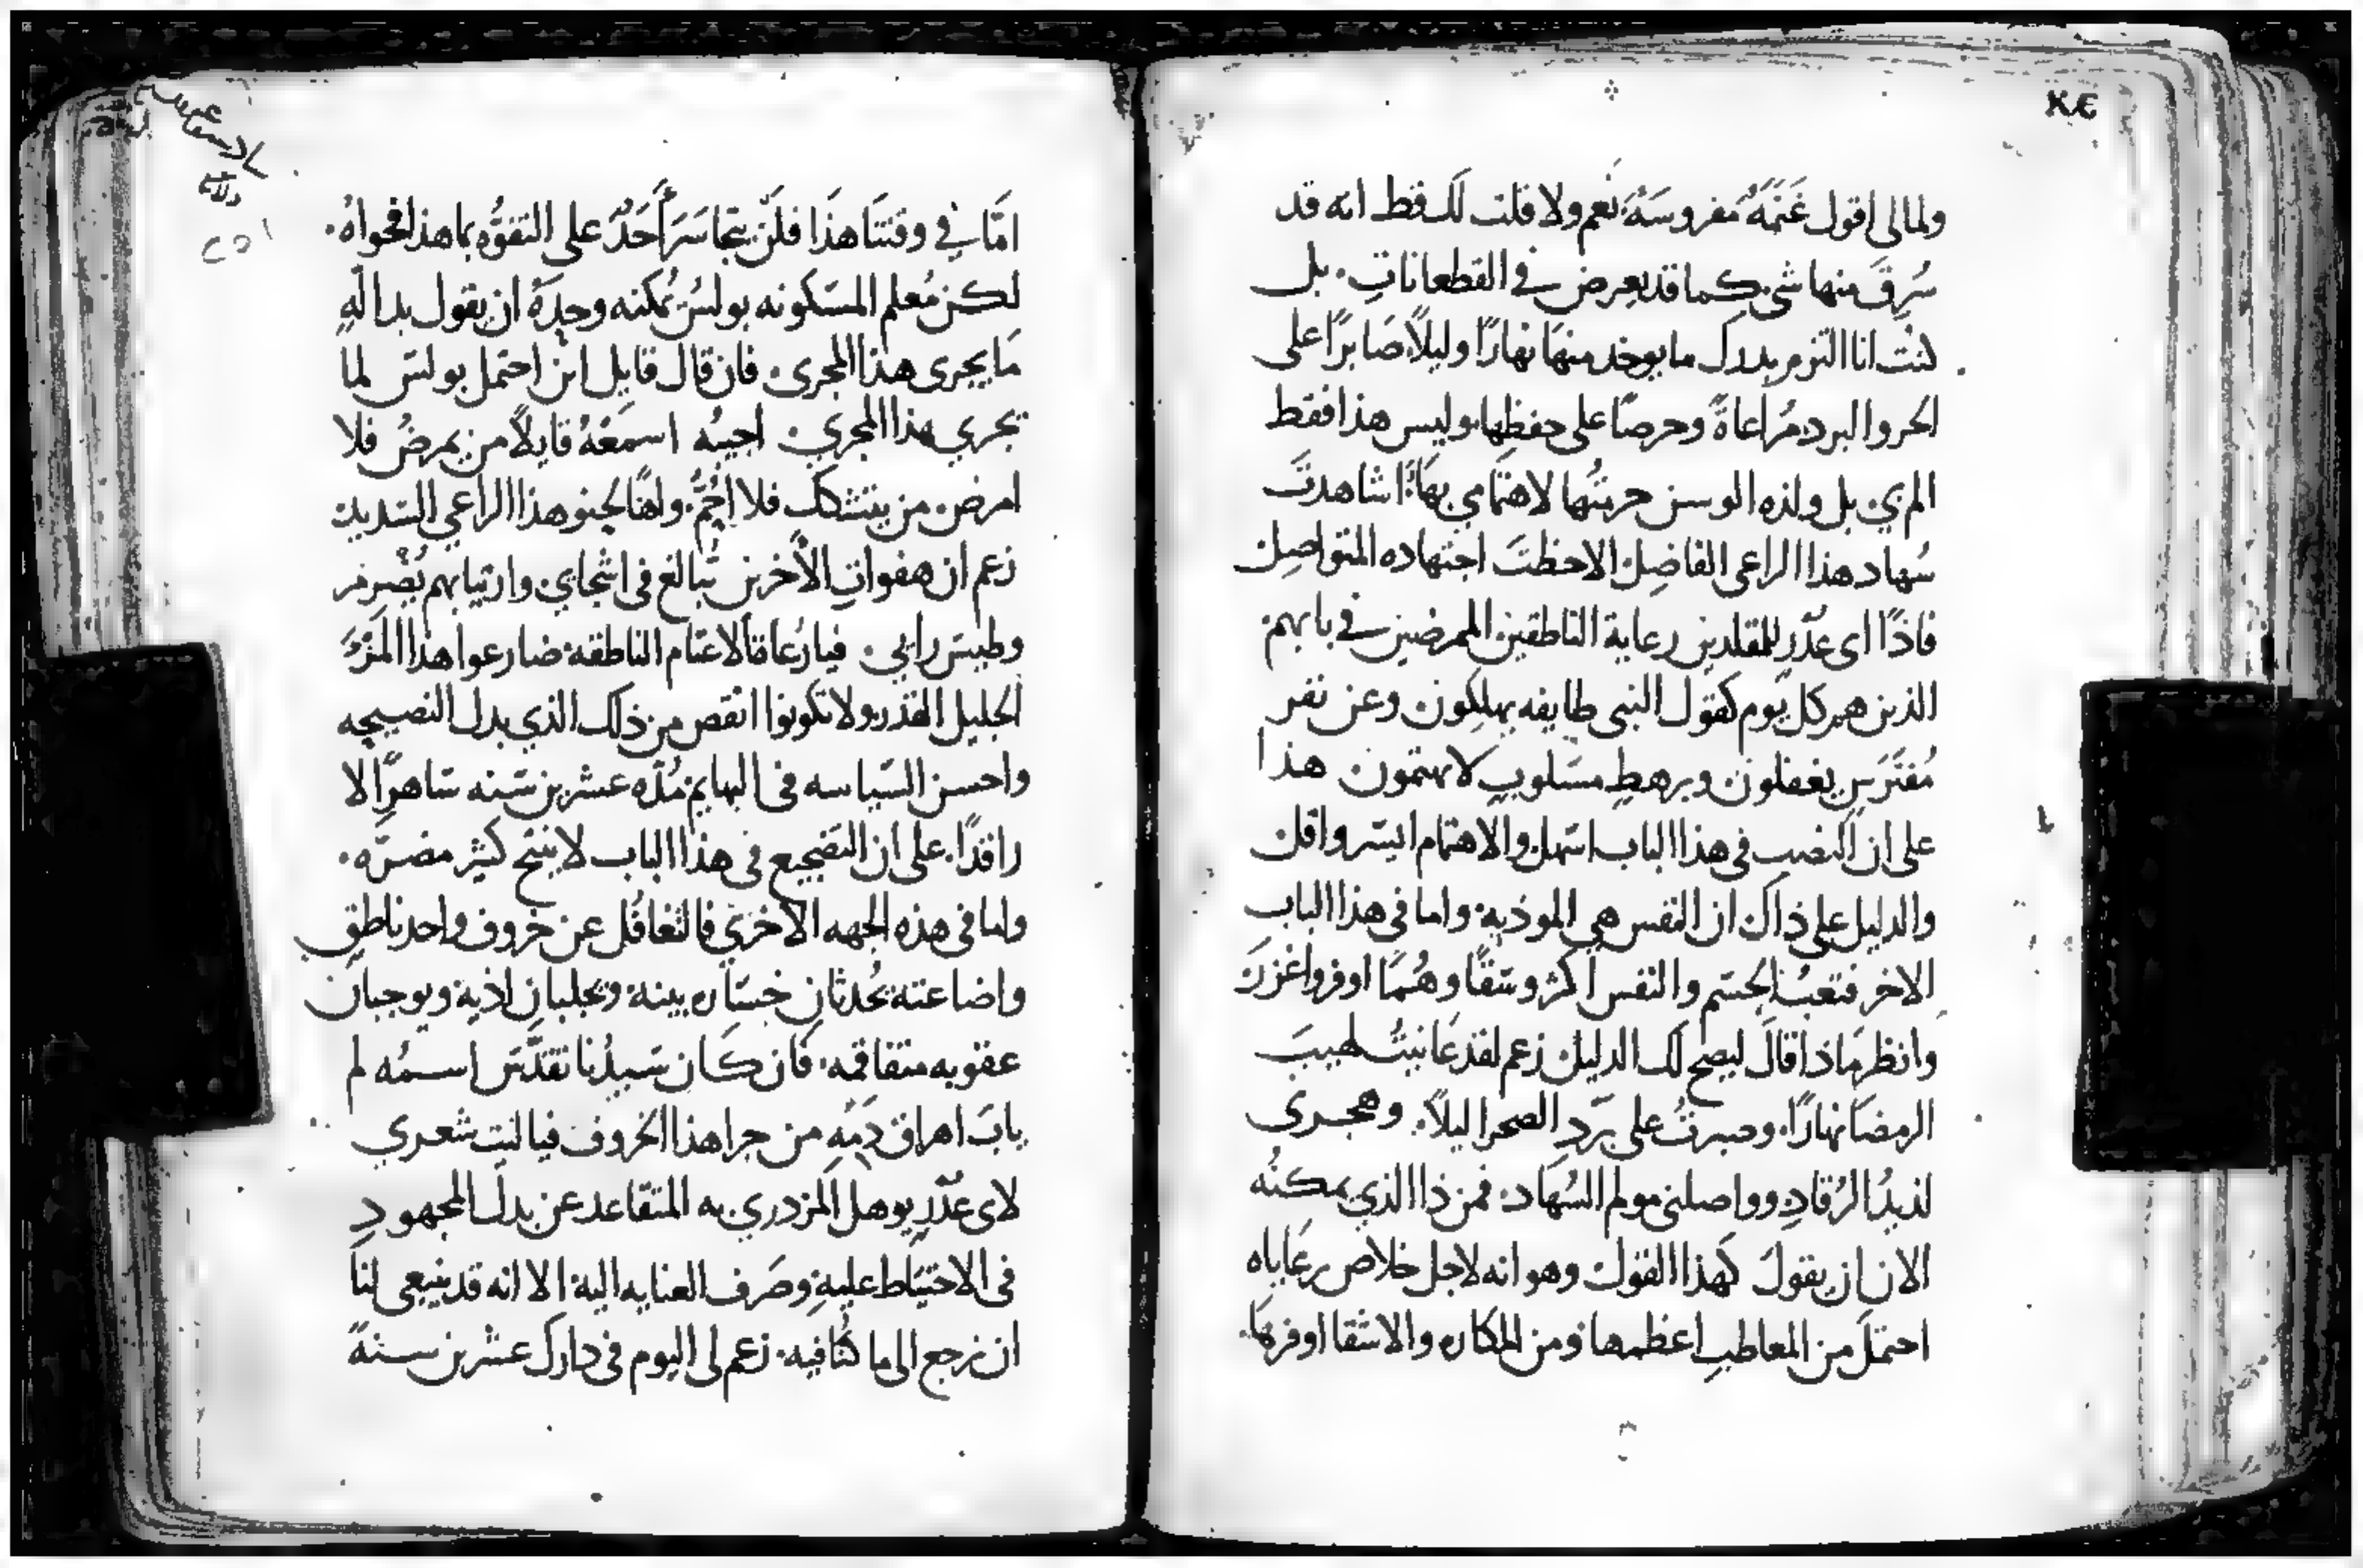 ولمالي اقول غَنَمَةً مفروسَةً نعم ولا قلت لك قط انه قد
سُرِقَ منها شي كما قد يعرض في القطعانات. بل
كنتُ انا التزم بدرك ما يوخد منها نهارًا وليلاً صَابرًا على
الحر والبرد مُراعاةً وحرصًا على حفظها وليس هذا فقط
المري بل ولذه الوسن حرمتُها لاهتمامي بها: اشاهدتَ
سُهاد هذا الراعي الفاضِل الاحظتَ اجتهاده المتواصِل
فاذًا اي عُذرٍ للمقلدين رعاية الناطقين الممرضين في بابهم
الذين هم كل يوم كقول النبي طايفه يهلكون وعن نفر
مُفتَرَسٍ يغفلون وبرهطٍ مسلوبٍ لا يهتمون هذا
على ان النصب في هذا الباب اسهل والاهتمام ايسر واقل
والدليل على ذاك ان النفس هي الموذية واما في هذا الباب
الاخر فتعبُ الجسم والنفس اكثر وشقًا وهُمًا اوفر واغزر
وانظر مَاذا قالَ ليصح لك الدليل زعم لقد عَانيتُ لهيبَ
الرمضَا نهارًا. وصبرتُ على بَردِ الصحرا ليلاً. وهجرى
لذيدُ الرُقادِ وواصلنى مولم السُهاد. فمن ذا الذي يمكنُه
الان ان يقولَ كهذا القول وهو انه لاجل خلاص رعَاياه
احتملَ من المعاطبِ اعظمها ومن المكاره والاشقا اوفرها.
امَّا في وقتنَا هذَا فلَن يتجاسَرَ أحَدٌ على التفوُّه بما هذا فحواهُ.
لكن مُعلم المسكونه بولسُ يُمكنه وحدهُ ان يقول بدالَهِ
مَا يجرى هذا المجرى. فان قال قايل اين احتمل بولس لما
يجري هذا المجري. اجيبُه اسمَعْهُ قايلاً من يمرضُ فلا
امرض من يتشكك فلا اُحُمَّ. واهًا لحنو هذا الراعي الشديد
زعم ان هفوات الأخرين تُبالغ في اشجاي وارتيابهم يُضرمر
وطيس رايي. فيا رُعاة الاغنام الناطقه ضارعوا هذا المَرْءَ
الجليل القدر ولا تكونوا انقص من ذلك الذي بدل النصيحه
واحسن السّياسه في البهايم مُدّه عشرين سَنه سَاهرًا لا
راقدًا. على ان التضجيع في هذا الباب لا ينتج كثير مضرّه.
واما في هذه الجهه الاخري فالتغافُل عن خروف واحد ناطقٍ
واضاعته يُحدثان خسَاره بينة ويجلبان اذيه ويوجبان
عقوبه متفاقمه. فان كَان سَيدُنا تقدَّسَ اسمُه لم
يابَ اهراق دَمِه من جرا هذا الخروف فيا ليت شعري
لاى عُذرٍ يوهل المزدري به المتقاعد عن بدل المجهودِ
في الاحتيَاط عليهِ وصَرف العنايه اليه الا انه قد ينبغي لنا
ان نرجع الى ما كُنّا فيه. زعم لى اليوم في دارك عشرين سنةً